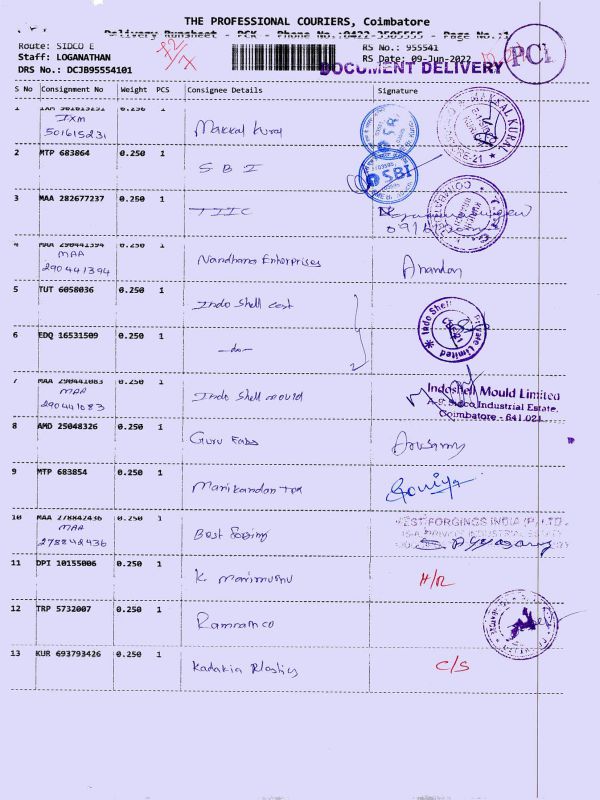 THE PROFESSIONAL COURIERS, Coimbatore
Delivery Runsheet - PCK - Phone No.:0422-3505555 - Page No.:1
Route: SIDCO E
RS No.: 955541
Staff: LOGANATHAN
RS Date: 09-Jun-2022
DRS No.: DCJB95554101
DOCUMENT DELIVERY
PCI
S No Consignment No Weight PCS Consignee Details Signature
1 IXM 501615231 0.250 1
IXM
501615231
Makkal Kural
MAKKAL KURAL
2 MTP 683864 0.250 1 SBI
SBI
3 MAA 282677237 0.250 1 TIIC
4 MAA 290441394 0.250 1
MAA
290441394
Nandhana Enterprises Anandan
5 TUT 6058036 0.250 1 Indo Shell cast
Indo Shell Private Limited
6 EDQ 16531509 0.250 1 -do-
7 MAA 290441083 0.250 1
MAA
290441083
Indo Shell mould
Indoshell Mould Limited
A-9, Sidco Industrial Estate,
Coimbatore - 641 021
8 AMD 25048326 0.250 1 Guru Fabs
9 MTP 683854 0.250 1 Manikandan Tex
10 MAA 278842436 0.250 1
MAA
278842436
Best Forging
BEST FORGINGS INDIA (P) LTD.
11 DPI 10155006 0.250 1 K. Marimuthu
12 TRP 5732007 0.250 1 Ramramco
13 KUR 693793426 0.250 1 Kadakia Plastics C/S